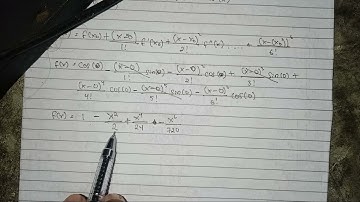 f(x) = f(x₀) + (x-x₀)/1! f'(x₀) + (x-x₀)²/2! f''(x) + ... + (x-(x₀))⁶/6!
f(x) = cos(0) - (x-0)/1! sin(0) - (x-0)²/2! cos(0) + (x-0)³/3! sin(0) +
(x-0)⁴/4! cos(0) - (x-0)⁵/5! sin(0) - (x-0)⁶/6! cos(0)
f(x) = 1 - x²/2 + x⁴/24 - x⁶/720